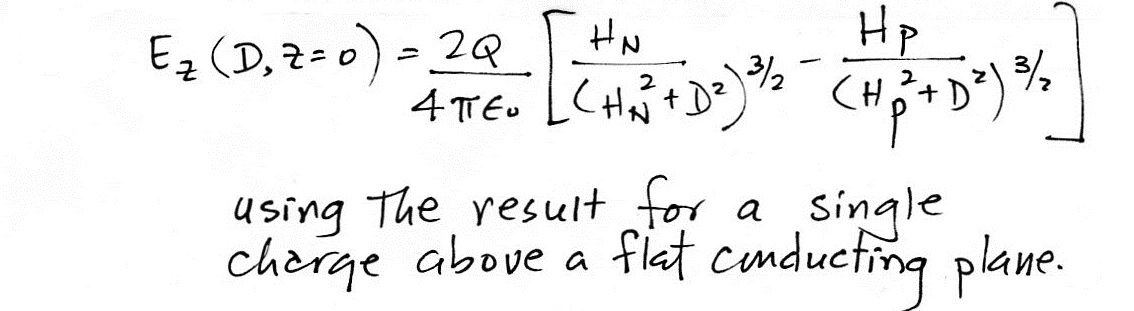 E_z (D, z=0) = 2Q / 4πϵ₀ [ H_N / (H_N² + D²)^3/2 - H_P / (H_P² + D²)^3/2 ]
using the result for a single
charge above a flat conducting plane.